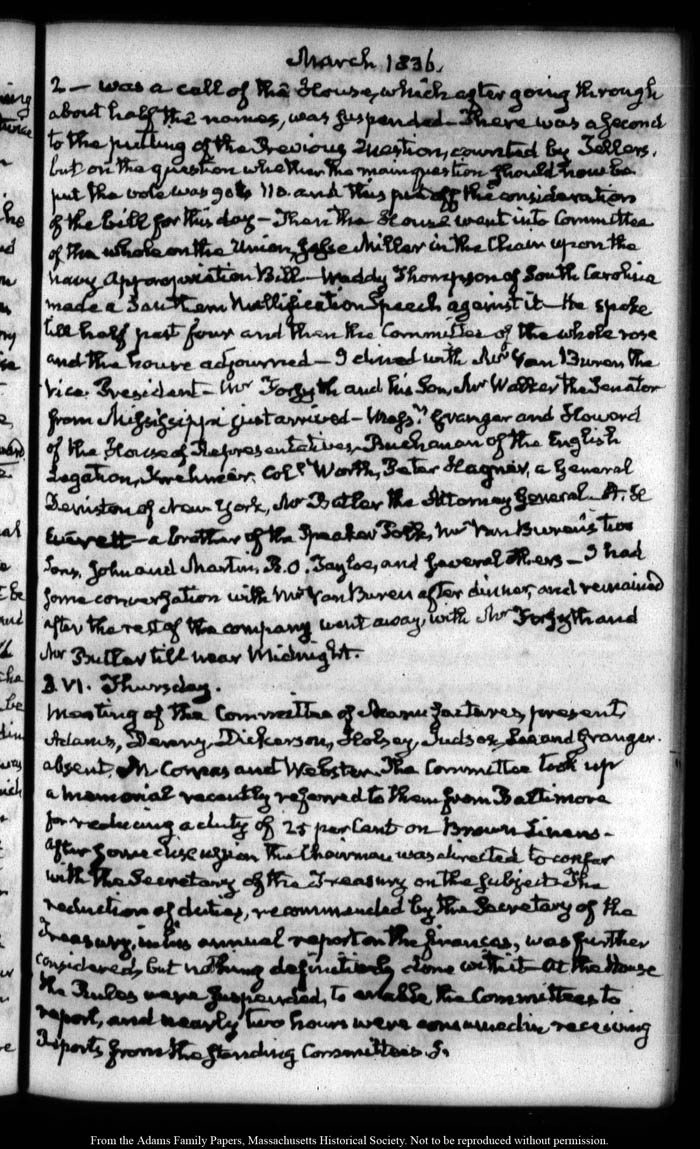 March 1836.
2 — was a call of the House, which after going through
about half the names, was suspended — There was a second
to the putting of the Previous Question, counted by Tellers.
but on the question whether the main question should now be
put the vote was 90 to 110. and this put off the consideration
of the bill for this day — Then the House went into Committee
of the whole on the Union, Jesse Miller in the Chair upon the
navy Appropriation Bill — Waddy Thompson of South Carolina
made a Southern Nullification Speech against it — He spoke
till half past four and then the Committee of the whole rose
and the house adjourned — I dined with Mr Van Buren the
Vice President — Mr Forsyth and his Son, Mr Walker the Senator
from Mississippi just arrived — Messrs Granger and Howard
of the House of Representatives — Buchanan of the English
Legation, Krehmer, Coll Worth, Peter Hagner, a General
of New York, Mr Butler the Attorney General — A. H
Everett — a brother of the Speaker Polk, Mr Van Buren's two
Sons, John and Martin, B. O. Tayloe, and several others — I had
some conversation with Mr Van Buren after dinner, and remained
after the rest of the company went away, with Mr Forsyth and
Mr Butler till near Midnight.
3. VI. Thursday.
Meeting of the Committee of Manufactures, present,
Adams, Denny, Dickerson, Holsey, Judson, Lee and Granger.
absent, McComas and Webster. The Committee took up
a memorial recently referred to them from Baltimore
for reducing a duty of 25 per Cent on Brown Linens —
After some discussion the Chairman was directed to confer
with the Secretary of the Treasury on the subject — The
reduction of duties, recommended by the Secretary of the
Treasury, in his annual report on the finances, was further
considered, but nothing definitively done with it — At the House
the Rules were suspended, to enable the Committees to
report, and nearly two hours were consumed in receiving
Reports from the standing Committees.
From the Adams Family Papers, Massachusetts Historical Society. Not to be reproduced without permission.